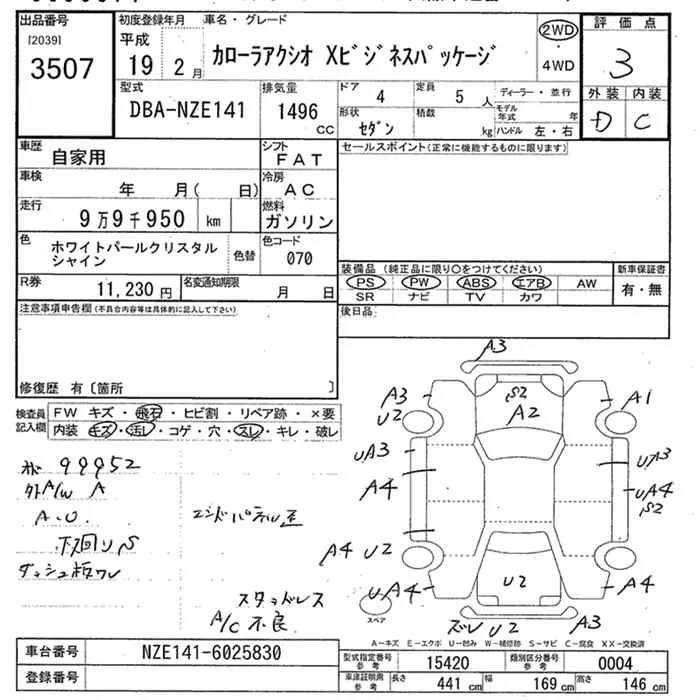 出品番号
[2039]
3507
初度登録年月
平成
19 年 2 月
車名・グレード
カローラアクシオ Xビジネスパッケージ
2WD
・
4WD
評価点
3
外装 内装
D C
型式
DBA-NZE141
排気量
1496
CC
ドア 4
定員 5 人
ディーラー・並行
形状 セダン
積載 kg
モデル年式 年
ハンドル 左・右
車歴
自家用
シフト
FAT
車検
年 月( 日)
冷房
AC
走行
9万9千950 km
燃料
ガソリン
色
ホワイトパールクリスタル
シャイン
色替
色コード
070
R券
11,230 円
名変通知期限
月 日
注意事項申告欄(不具合内容等は具体的に記入して下さい)
修復歴 有〔箇所 〕
セールスポイント(正常に機能するものに限ります)
装備品(純正品に限り○をつけてください)
PS PW ABS エアB AW
SR ナビ TV カワ
新車保証書
有・無
後日品
検査員
記入欄
FW キズ・飛石・ヒビ割・リペア跡・×要
内装 キズ・汚レ・コゲ・穴・スレ・キレ・破レ
99952
外A/W A
A-U
下回りS
ダッシュ板ワレ
エンドパネル歪
スタッドレス
A/C 不良
A3
A3
U2
S2
A2
A1
UA3
A4
UA3
UA4
S2
A4 U2
UA4
U2
A4
ズレ U2
A3
スペア
A-キズ E-エクボ U-凹み W-補修跡 S-サビ C-腐食 XX-交換済
車台番号
NZE141-6025830
登録番号
型式指定番号
参考
15420
類別区分番号
参考
0004
車庫証明用
参考
長さ 441 cm
幅 169 cm
高さ 146 cm